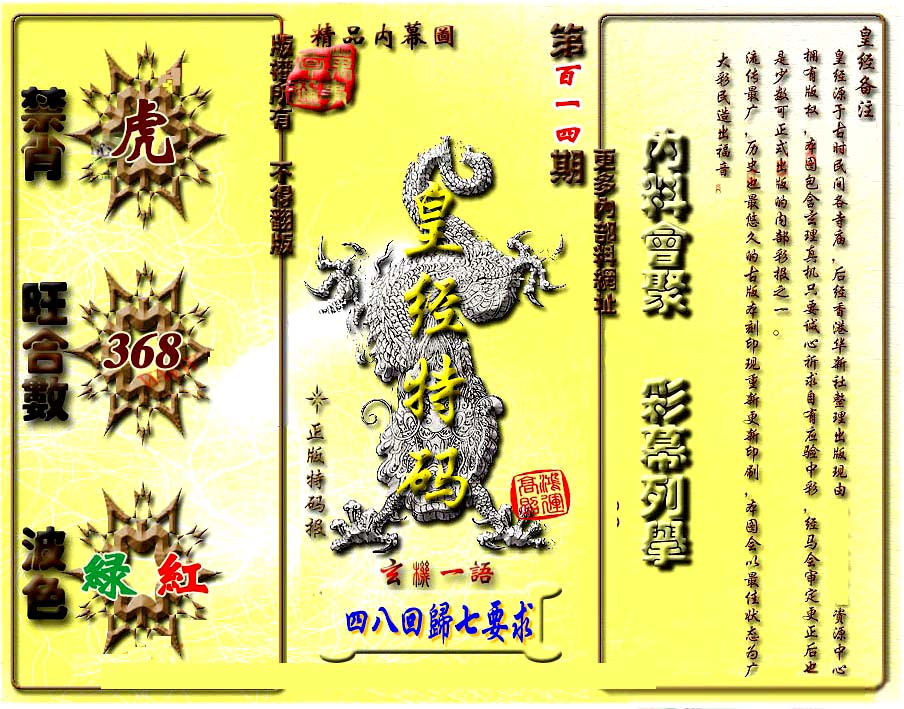 精品内幕圖
第百一四期
版權所有 不得翻版
更多內部料網址
禁肖
虎
旺合數
368
波色
綠 紅
皇经特码
正版特码报
鴻運高照
玄機一語
四八回歸七要求
內料會聚
彩幕列舉
皇经备注
皇经源于古时民间各寺庙,后经香港华新社整理出版现由 资源中心
拥有版权,本图包含玄理真机只要诚心祈求自有应验中彩,经马会审定更正后也
是少数可正式出版的内部彩报之一。
流传最广,历史也最悠久的古版本刻印现重新更新印刷,本图会以最佳状态为广
大彩民造出福音